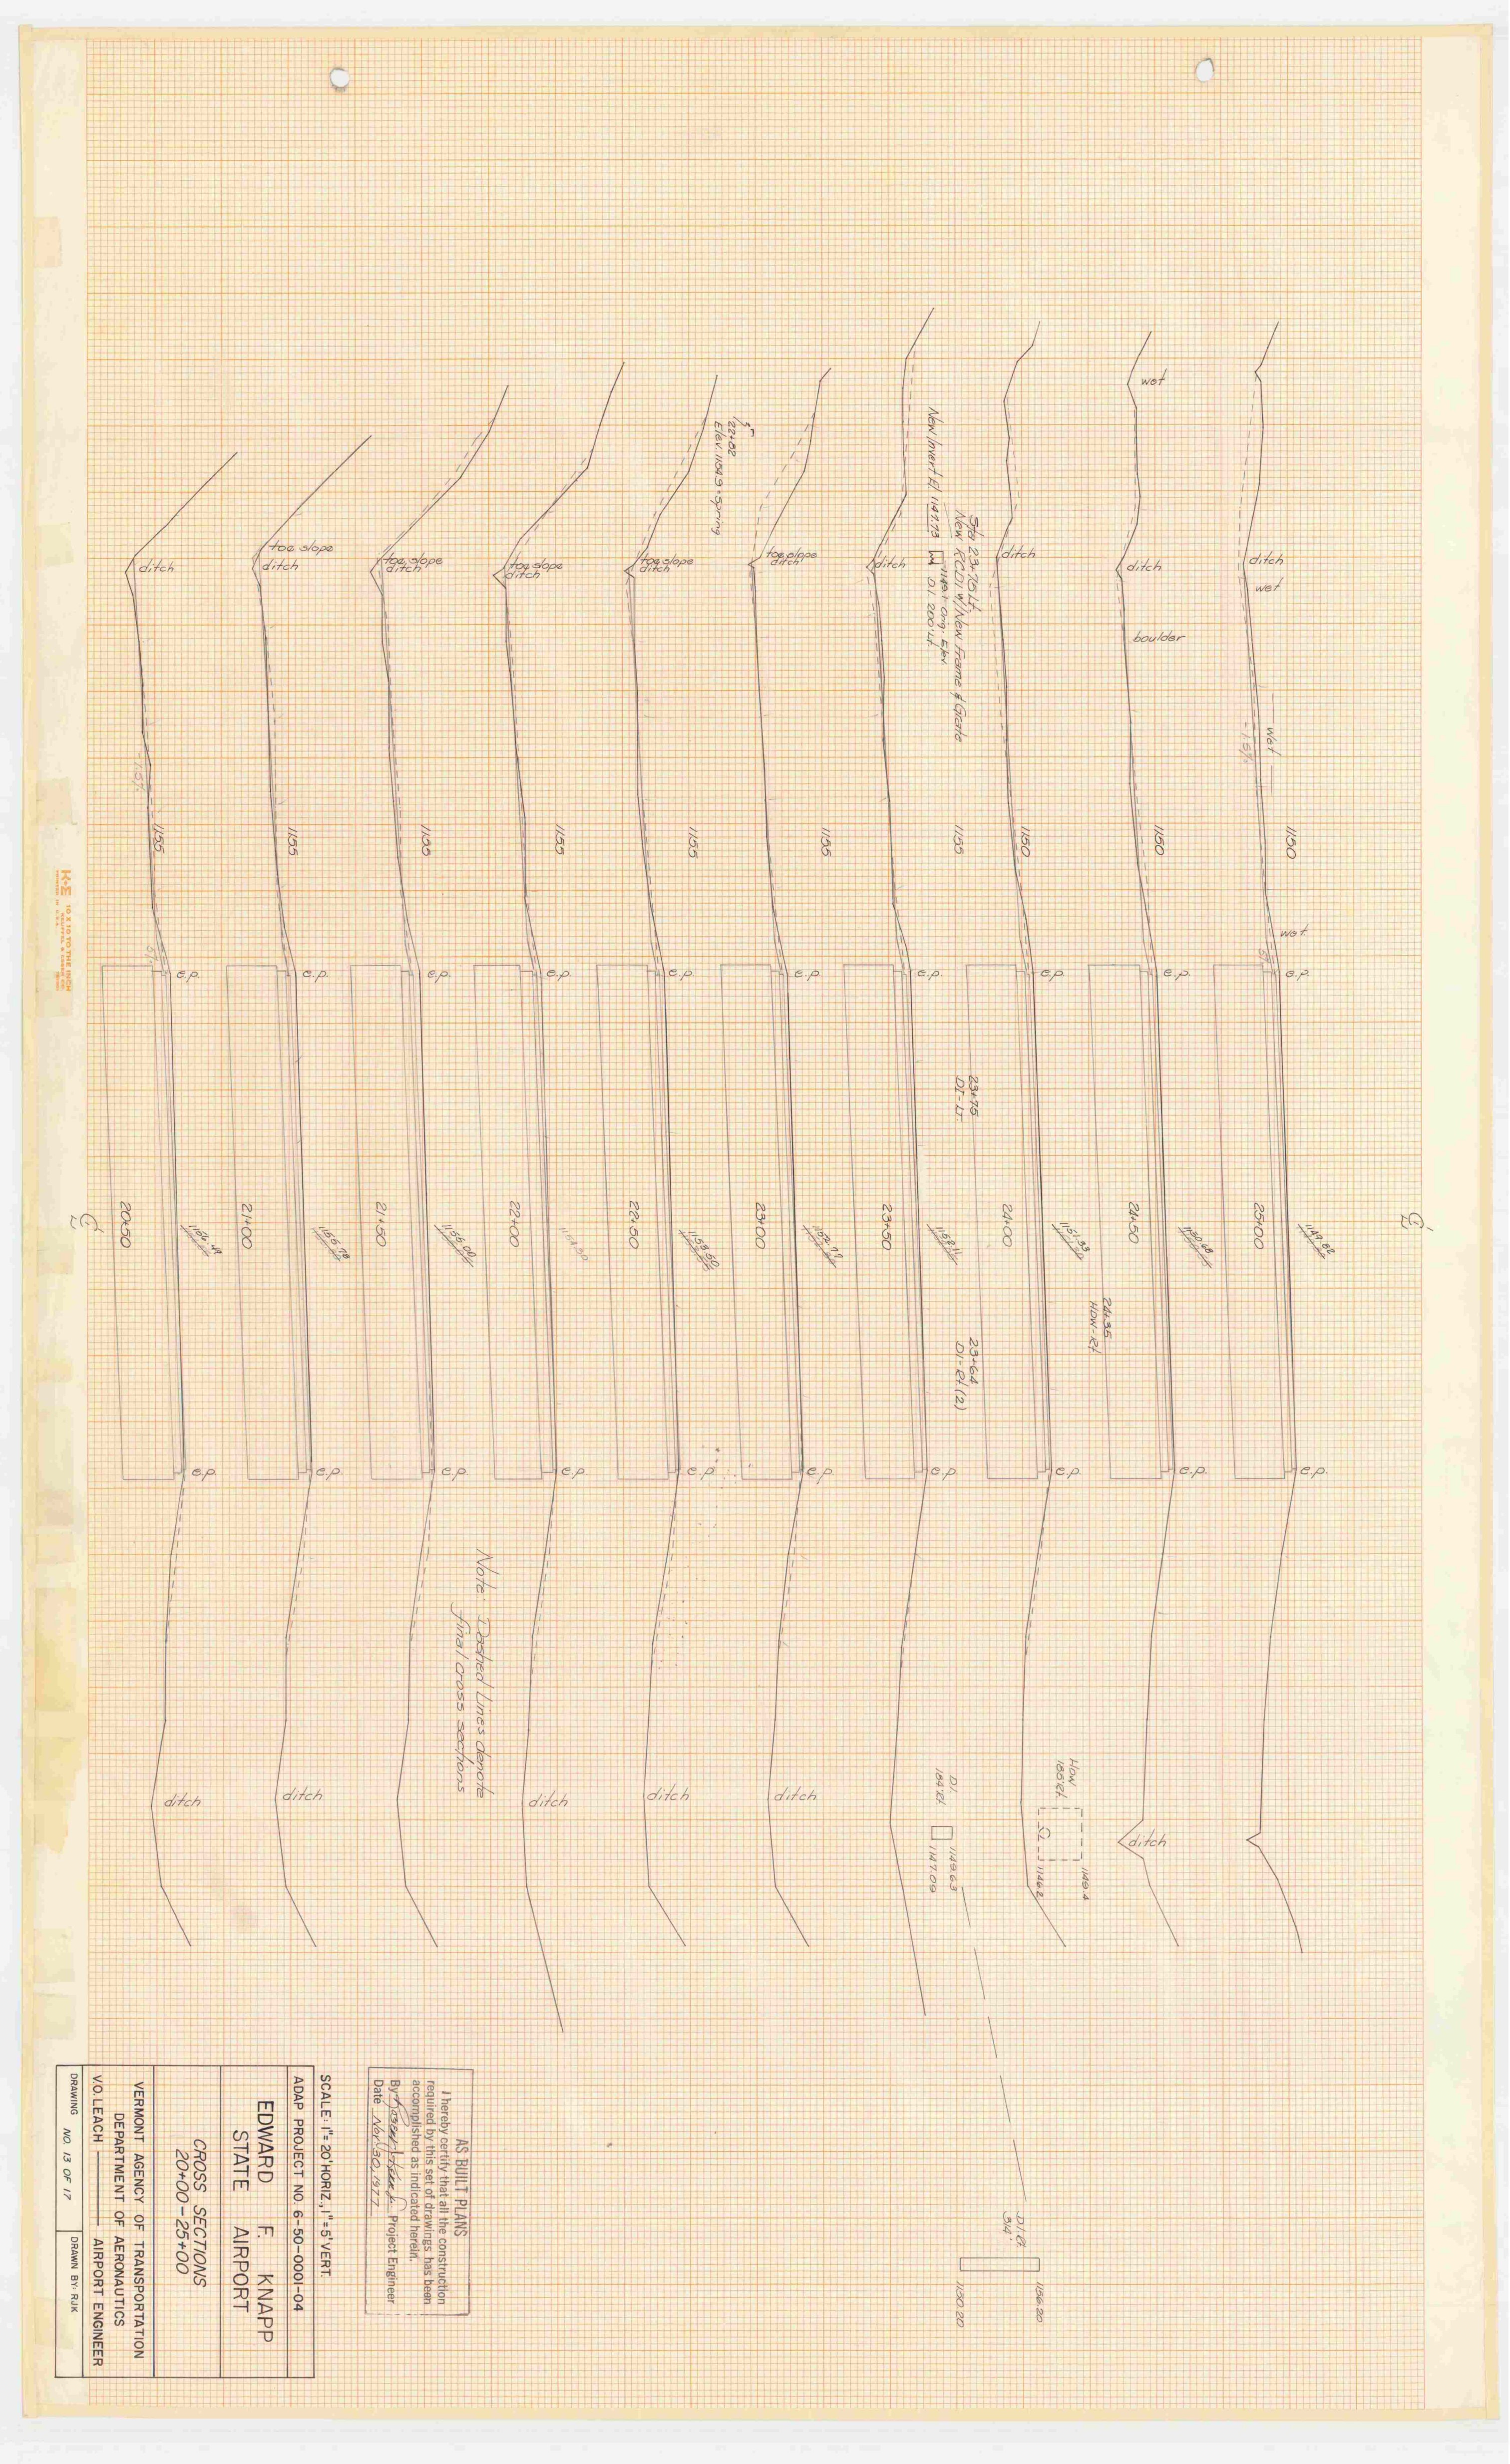 wet
New Invert El. 1147.73
Sta 23+75 Lt
New RCDI w/New Frame & Grate
1149.1 Orig. Elev.
D.I. 200' Lt
22+82
Elev. 1154.9 = spring
ditch
toe slope
ditch
toe slope
ditch
toe slope
ditch
toe slope
ditch
toe slope
ditch
ditch
ditch
ditch
ditch
wet
boulder
wet
-1.5%
-1.5%
1155
1155
1155
1155
1155
1155
1155
1150
1150
1150
wet
5%
5%
e.p.
e.p.
e.p.
e.p.
e.p.
e.p.
e.p.
e.p.
e.p.
e.p.
23+75
DI-Lt.
20+50
21+00
21+50
22+00
22+50
23+00
23+50
24+00
24+50
25+00
1156.78
1155.00
1154.30
1153.50
1152.77
1152.11
1151.33
1150.68
1149.82
24+35
HOW-Rt
23+64
DI-Rt (2)
e.p.
e.p.
e.p.
e.p.
e.p.
e.p.
e.p.
e.p.
e.p.
e.p.
Note: Dashed Lines denote
final cross sections
ditch
ditch
ditch
ditch
ditch
ditch
D.I.
184' Rt
1149.63
1147.09
HOW
185' Rt
1149.4
1146.2
D.I. Rt
314'
1156.20
1150.20
K+E 10 X 10 TO THE INCH
AS BUILT PLANS
I hereby certify that all the construction
required by this set of drawings has been
accomplished as indicated herein.
By Project Engineer
Date Nov. 30, 1977
SCALE: 1"= 20' HORIZ., 1"= 5' VERT.
ADAP PROJECT NO. 6-50-0001-04
EDWARD F. KNAPP
STATE AIRPORT
CROSS SECTIONS
20+00-25+00
VERMONT AGENCY OF TRANSPORTATION
DEPARTMENT OF AERONAUTICS
V.O. LEACH AIRPORT ENGINEER
DRAWING NO. 13 OF 17
DRAWN BY: RJK